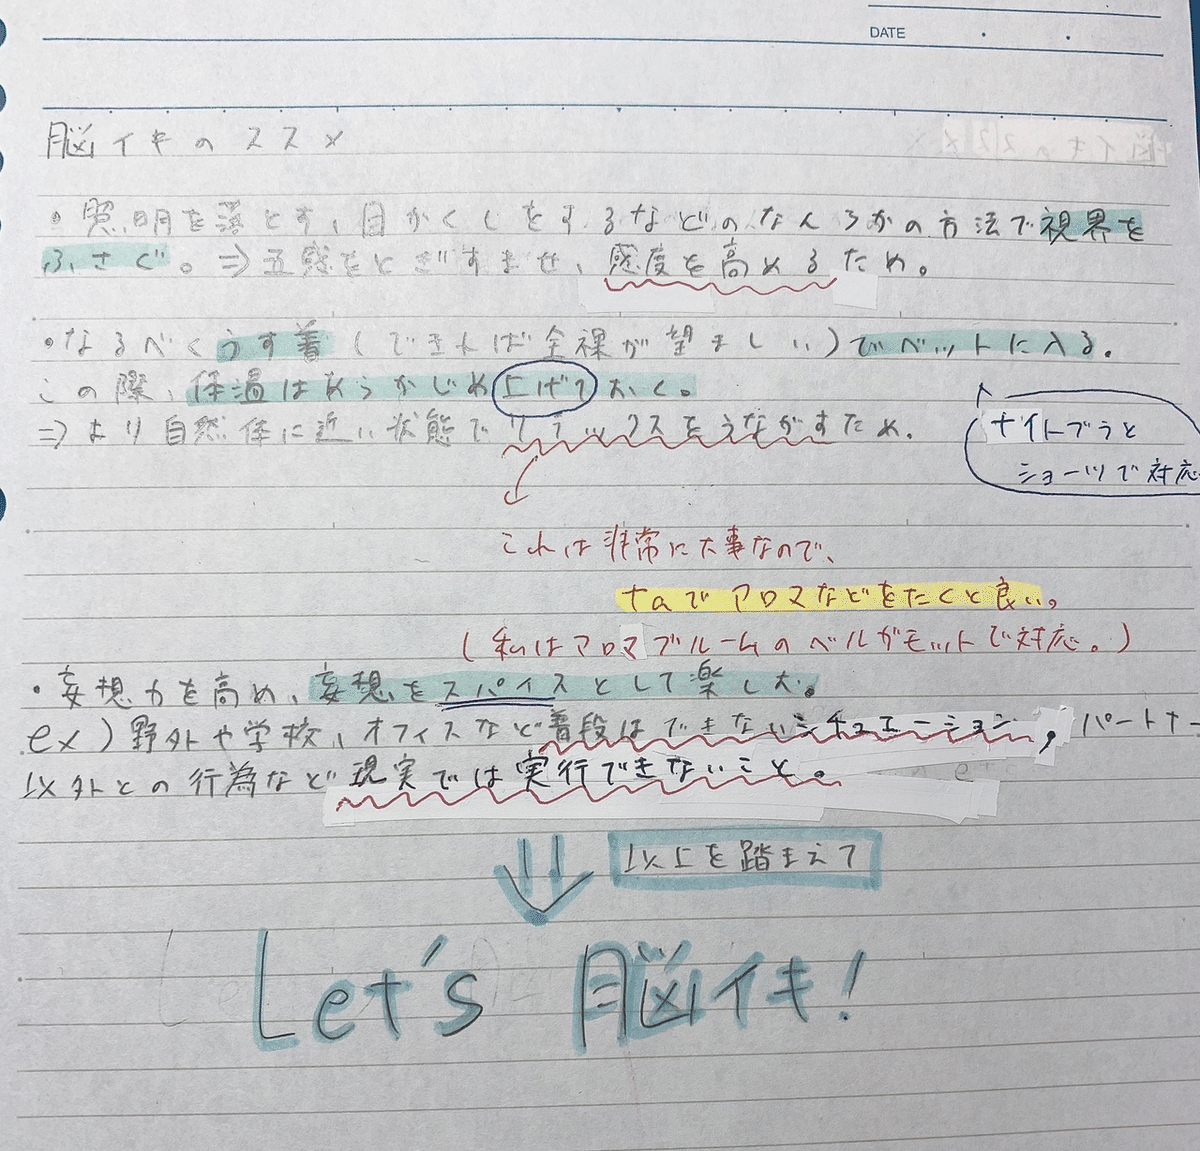 DATE
脳イキのススメ
・照明を落とす、目かくしをするなどのなんらかの方法で視界を
ふさぐ。⇒五感をとぎすませ、感度を高めるため。
・なるべくうす着(できれば全裸が望ましい)でベットに入る。
この際、体温はあらかじめ上げておく。
⇒より自然体に近い状態でリラックスをうながすため。
ナイトブラと
ショーツで対応
これは非常に大事なので、
なのでアロマなどをたくと良い。
(私はアロマブルームのベルガモットで対応。)
・妄想力を高め、妄想をスパイスとして楽しむ。
ex)野外や学校、オフィスなど普段はできないシチュエーション,パートナー
以外との行為など現実では実行できないこと。
以上を踏まえて
Let's 脳イキ!